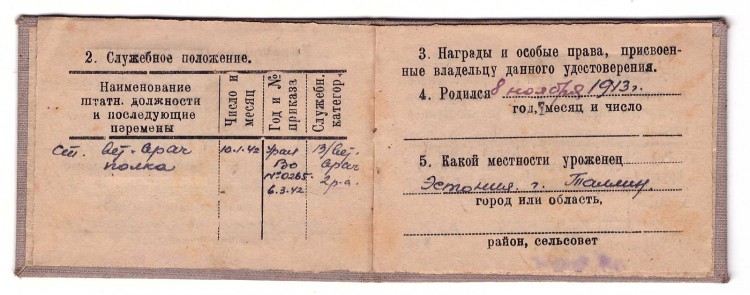 2. Служебное положение.
Наименование
штатн. должности
и последующие
перемены
Число и
месяц
Год и №
приказа
Служебн.
категор.
Ст. вет. врач
полка
10.1.42
Урал
Во
№0265.
6.3.42
В/вет.
врач
2 р-а.
3. Награды и особые права, присвоен-
ные владельцу данного удостоверения.
4. Родился 8 ноября 1913 г.
год, месяц и число
5. Какой местности уроженец
Эстония г. Таллин.
город или область,
район, сельсовет